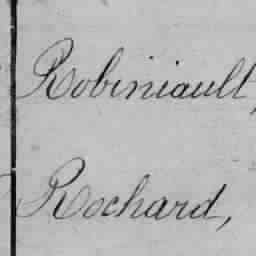 Robiniault,
Rochard,